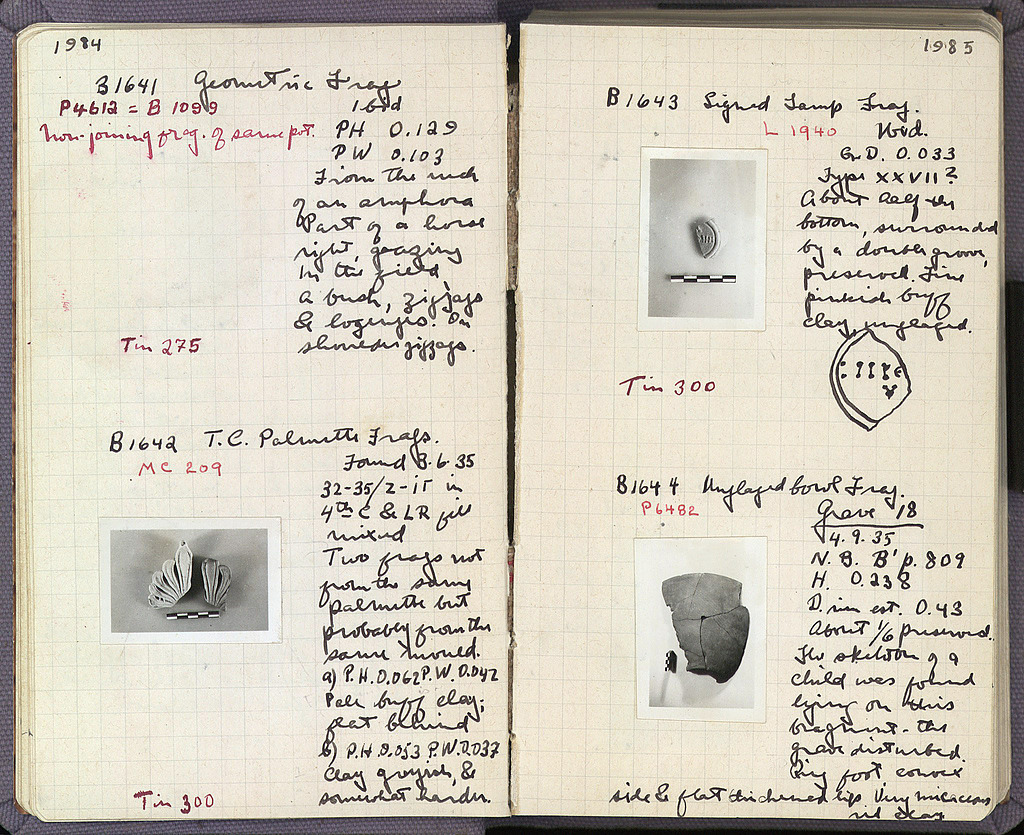 1984
B1641 Geometric Frag
P4612 = B 1099 Ibid
Non-joining frag. of same pot. PH 0.129
PW 0.103
From the neck
of an amphora
Part of a horse
right, grazing
In the field
a bush, zigzags
& lozenges. On
shoulder zigzags.
Tin 275
B1642 T.C. Palmette Frags.
MC 209
Found 3.6.35
32-35/Z-IΓ in
4th C & LR fill
mixed
Two frags not
from the same
palmette but
probably from the
same mould.
a) P.H.0.062 P.W.0.042
Pale buff clay;
flat behind
b) P.H.0.053 P.W.0.037
Clay greyish, &
somewhat harder.
Tin 300
1985
B1643 Signed Lamp Frag.
L 1940 Ibid.
Gr.D. 0.033
Type XXVII?
About half the
bottom, surrounded
by a double groove,
preserved. Fine
pinkish buff
clay, unglazed.
Tin 300
B1644 Unglazed bowl Frag.
P6482 Grave 18
4.9.35
N.B. B' p. 809
H. 0.238
D. rim est. 0.43
About 1/6 preserved.
The skeleton of a
child was found
lying on this
fragment - the
grave disturbed.
Ring foot convex
side & flat thickened lip. Very micaceous
red clay